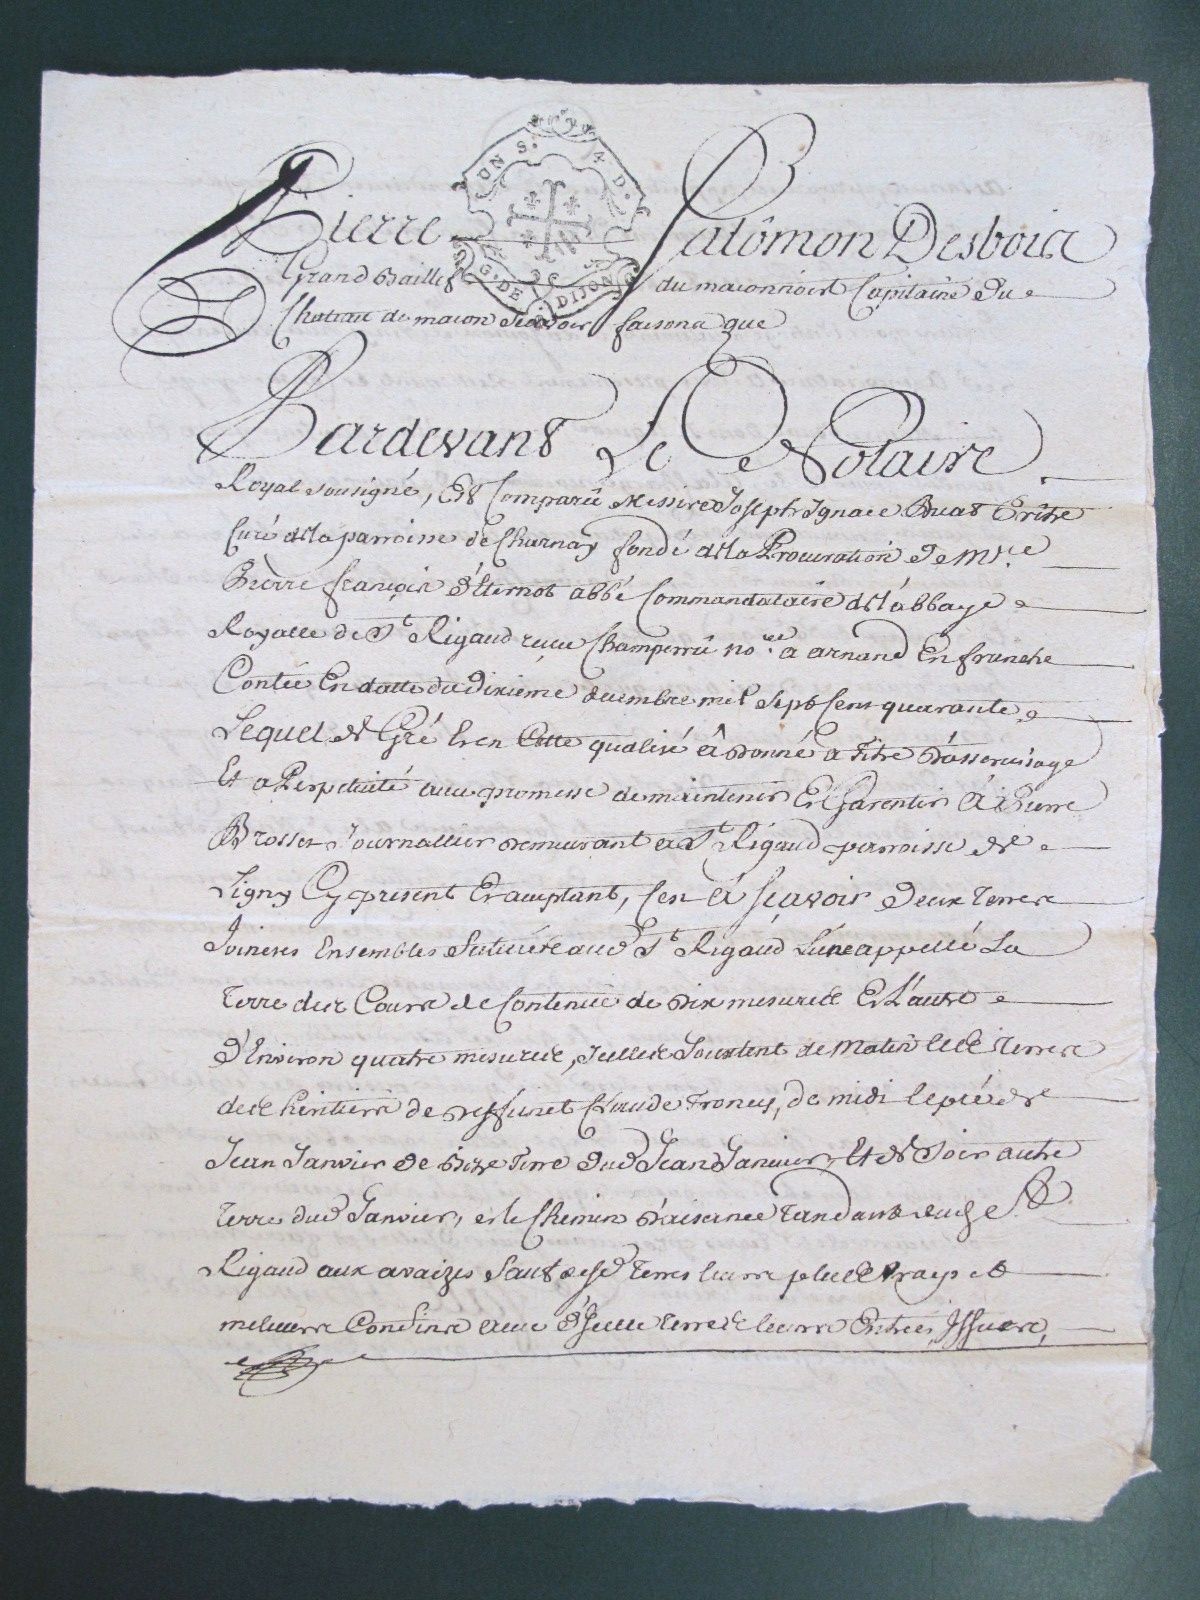 UN S. 4 D.
G. DE DIJON
Pierre Salômon Desbois
Grand Baillif du maconnois Capitaine du
Chateau de macon Scavoir faisons que
Pardevant Le Notaire
Royal sousigné, Est Comparu Messire Joseph Ignace Buat Prêtre
Curé de la parroisse de Charnay fondé de la Procuration de Mre
Pierre françois d'Eternoz abbé Commandataire de l'abbaye
Royalle de St Rigaud recue Champerru nore a ornand En franche
Contée En datte du dixieme decembre mil Sept Cent quarante
Lequel de Gré Et en Cette qualité â donné a titre d'asservisage
Et a Perpetuité avec promesse de maintenir Et Garentir A Pierre
Brosses Journallier demeurant a St Rigaud parroisse de
Ligny Cy present Et aceptant, C'est A scavoir deux terres
Joinctes Ensembles Scituées aud St Rigaud L'une appellé La
terre des Cours de Contenue de dix mesures Et L'autre
d'Environ quatre mesures, Jcelles Joustent de Matin les terres
des heritiers de deffunct Claude Troncy, de midi le pré de
Jean Janvier de bize terre dud Jean Janvier, Et de Soir autre
terre dud Janvier, et le Chemin d'aisance tendant dud St
Rigaud aux avaizes Sauf desd terres leurs plus vrays et
meilleurs Confins avec d'Jcelle terres leurs Entrées, Jssues,